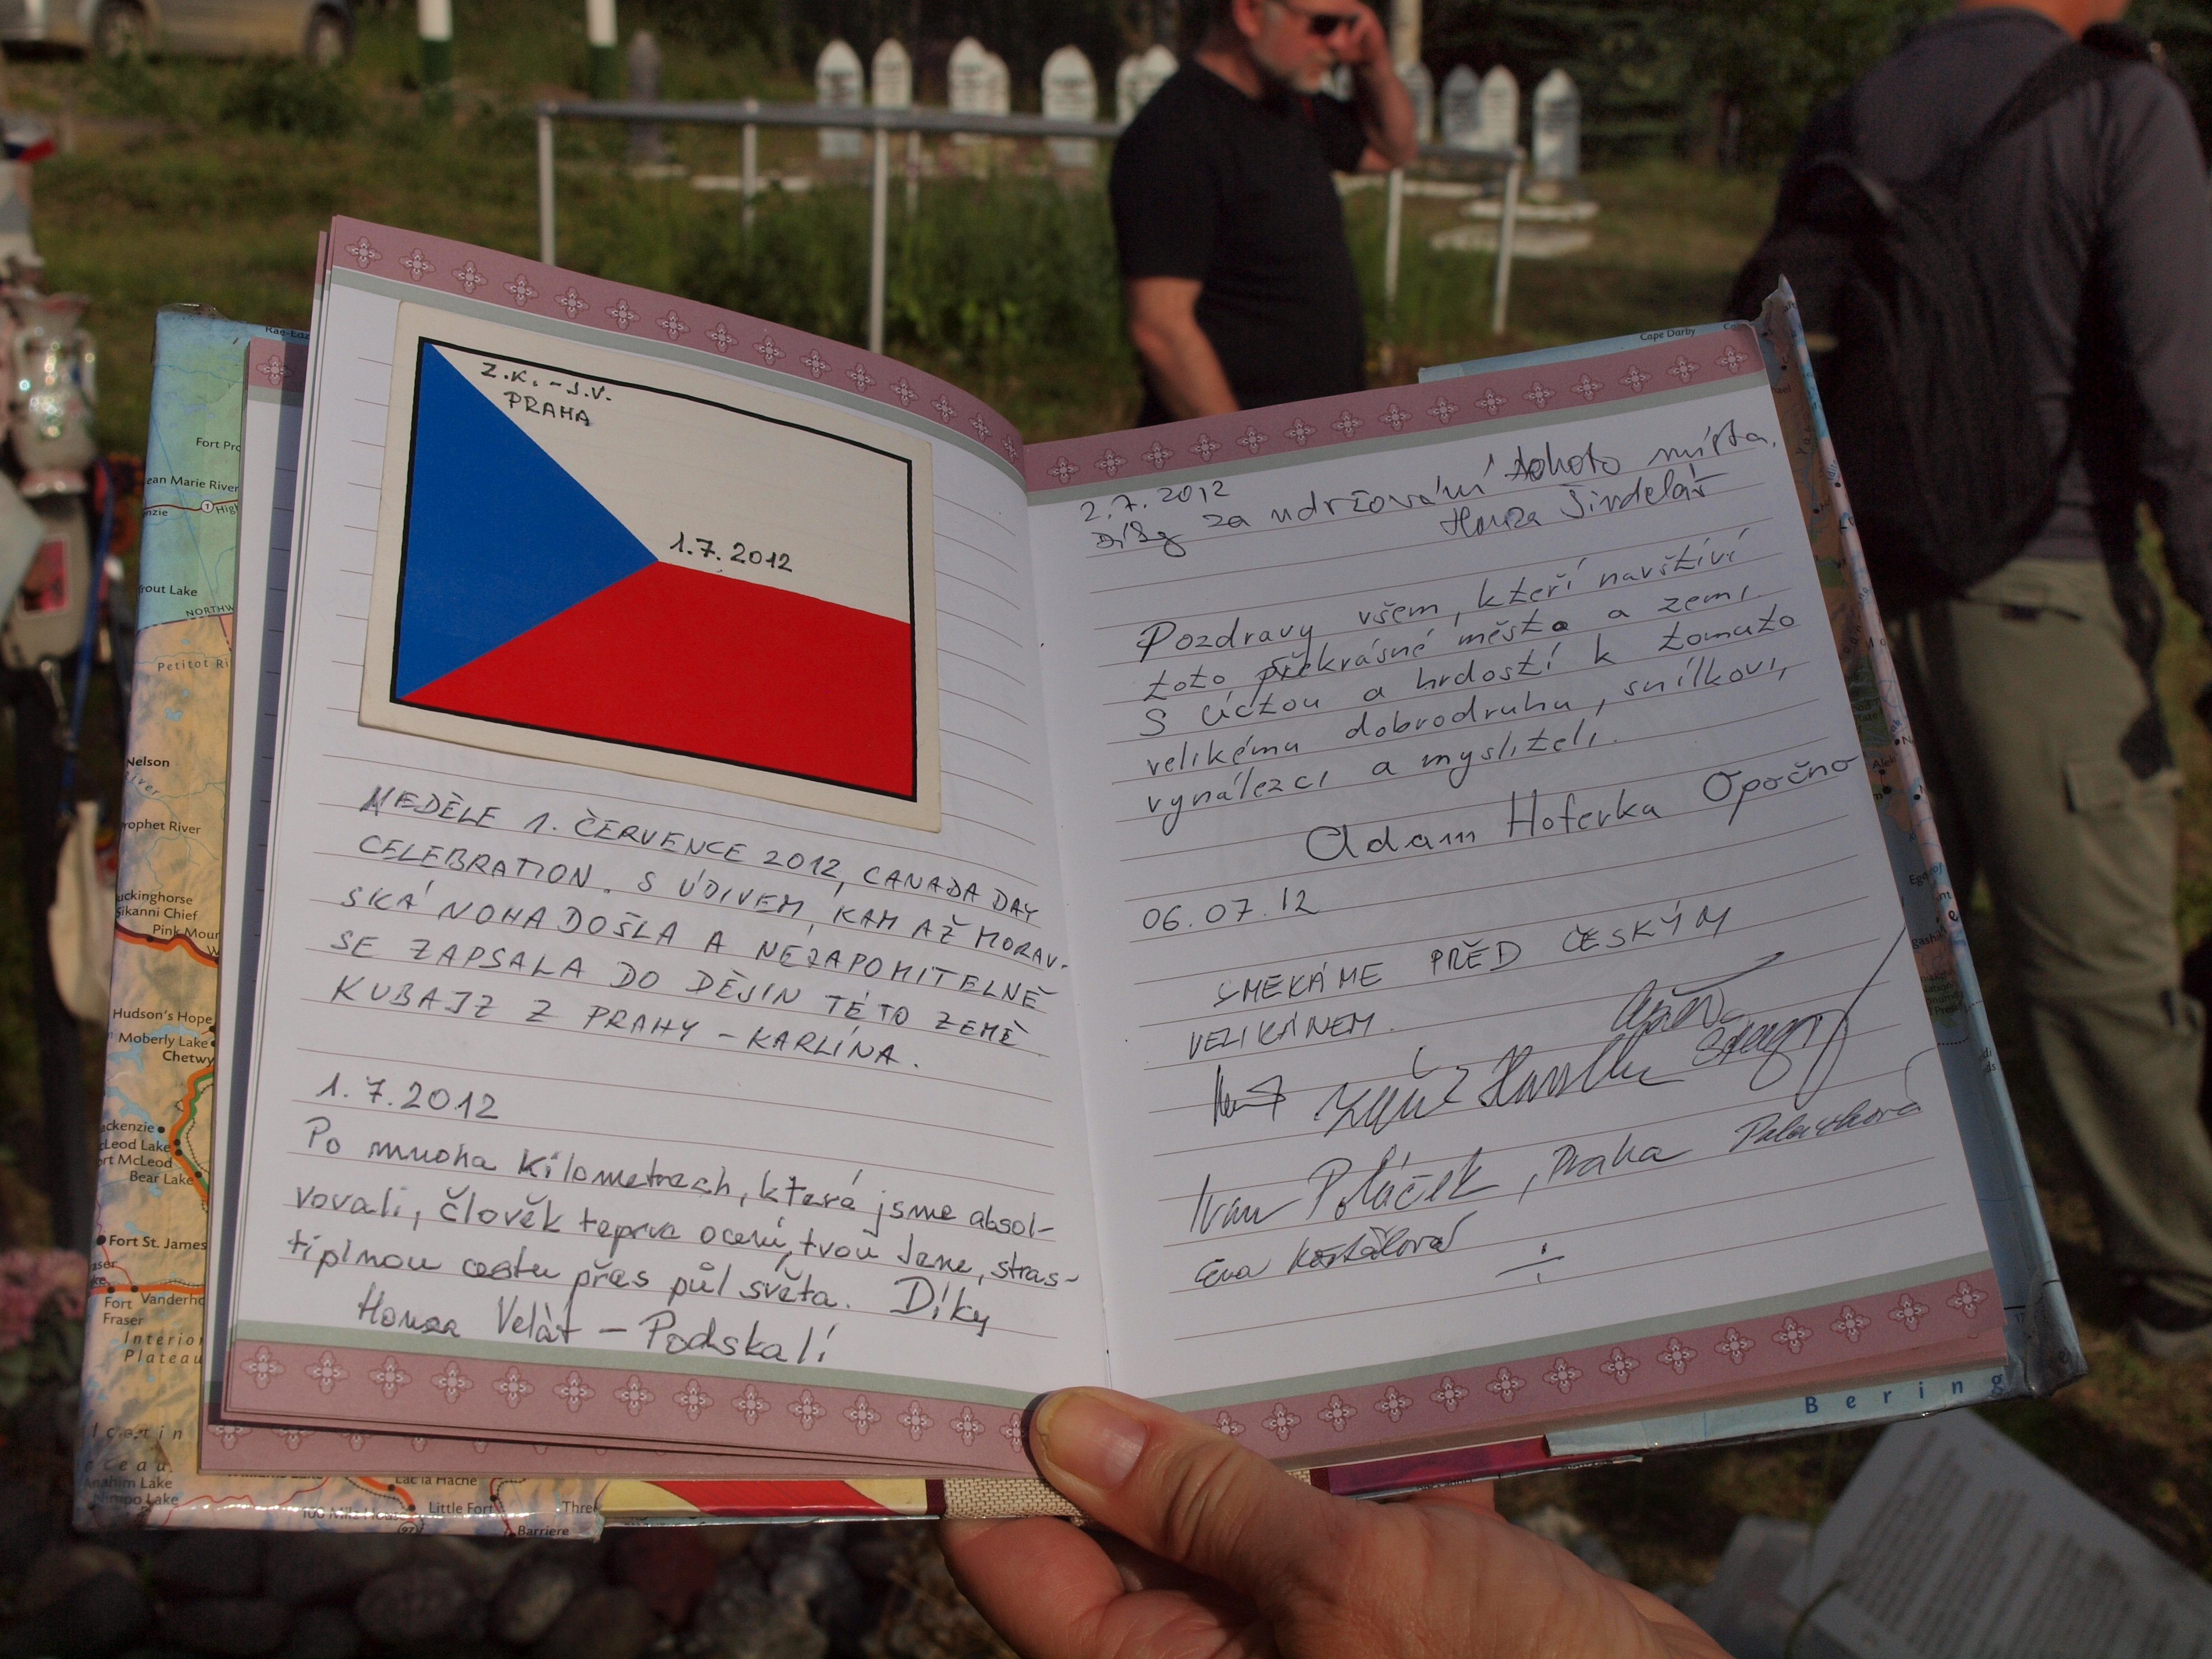 Z.K. - J.V.
PRAHA
1.7.2012
NEDĚLE 1. ČERVENCE 2012, CANADA DAY
CELEBRATION. S ÚDIVEM, KAM AŽ MORAV-
SKÁ NOHA DOŠLA A NEZAPOMITELNĚ
SE ZAPSALA DO DĚJIN TÉTO ZEMĚ
KUBAJZ Z PRAHY - KARLÍNA.
1.7.2012
Po mnoha kilometrech, která jsme absol-
vovali, člověk teprve ocení, tvou Jene, stras-
tiplnou cestu přes půl světa. Díky
Honza Velát - Podskalí
2.7.2012
Díky za udržování tohoto místa.
Honza Šindelář
Pozdravy všem, kteří navštíví
toto překrásné město a zemi.
S úctou a hrdostí k tomuto
velikému dobrodruhu, snílkovi,
vynálezci a mysliteli.
Adam Hoferka Opočno
06.07.12
SMEKÁME PŘED ČESKÝM
VELIKÁNEM.
Ivan Poláček, Praha
Eva
Rae-Edz
Fort Pro
ean Marie River
nzie
1
High
rout Lake
NORTHW
Petitot Ri
Nelson
River
rophet River
uckinghorse
Sikanni Chief
Pink Moun
Hudson's Hope
Moberly Lake
Chetwy
ackenzie
cLeod Lake
ort McLeod
Bear Lake
Fort St. James
Fort
Fraser
Vanderho
Interior
Plateau
Anahim Lake
Nimpo Lake
Lac la Hache
100 Mile Hous
97
Little Fort
Barriere
Three
Cape Darby
Bering